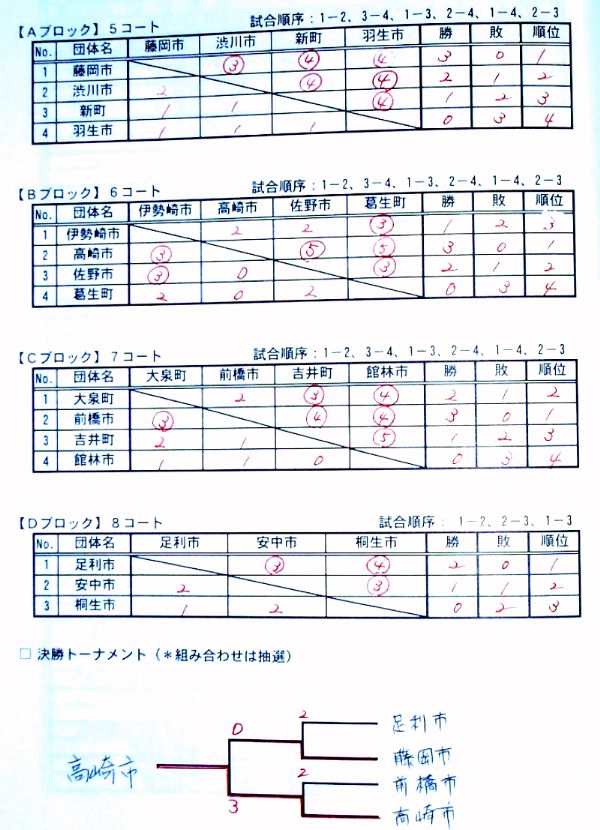 【Aブロック】5コート 試合順序：1－2、3－4、1－3、2－4、1－4、2－3
No. 団体名 藤岡市 渋川市 新町 羽生市 勝 敗 順位
1 藤岡市 ③ ④ ④ 3 0 1
2 渋川市 2 ④ ④ 2 1 2
3 新町 1 1 ④ 1 2 3
4 羽生市 1 1 1 0 3 4
【Bブロック】6コート 試合順序：1－2、3－4、1－3、2－4、1－4、2－3
No. 団体名 伊勢崎市 高崎市 佐野市 葛生町 勝 敗 順位
1 伊勢崎市 2 2 ③ 1 2 3
2 高崎市 ③ ⑤ ⑤ 3 0 1
3 佐野市 ③ 0 ③ 2 1 2
4 葛生町 2 0 2 0 3 4
【Cブロック】7コート 試合順序：1－2、3－4、1－3、2－4、1－4、2－3
No. 団体名 大泉町 前橋市 吉井町 館林市 勝 敗 順位
1 大泉町 2 ③ ④ 2 1 2
2 前橋市 ③ ④ ④ 3 0 1
3 吉井町 2 1 ⑤ 1 2 3
4 館林市 1 1 0 0 3 4
【Dブロック】8コート 試合順序： 1－2、2－3、1－3
No. 団体名 足利市 安中市 桐生市 勝 敗 順位
1 足利市 ③ ④ 2 0 1
2 安中市 2 ③ 1 1 2
3 桐生市 1 2 0 2 3
□ 決勝トーナメント（＊組み合わせは抽選）
2 足利市
0
藤岡市
高崎市
2 前橋市
3
高崎市